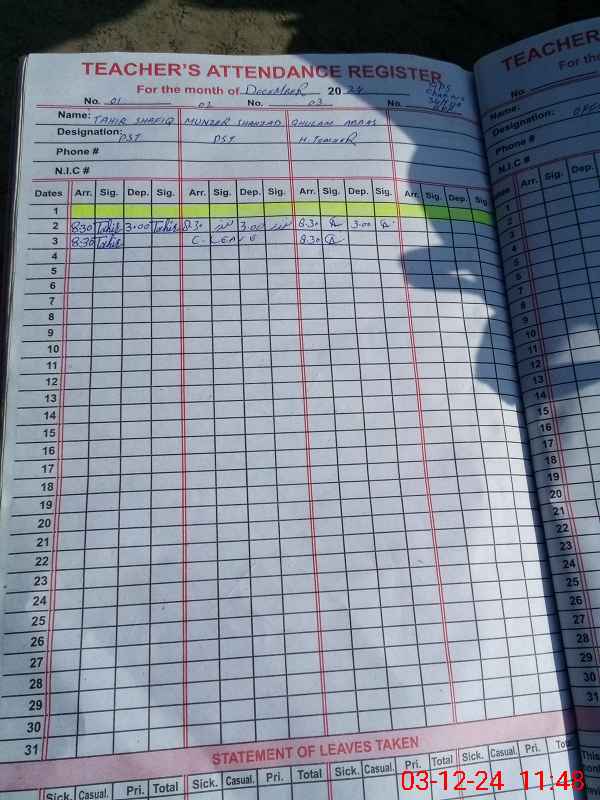 TEACHER'S ATTENDANCE REGISTER
For the month of DECEMBER 2024
No. 01 02 No. 03 No.
Name: TAHIR SHAFIQ MUNZER SHAHZAD GHULAM ABBAS
Designation: PST PST H. Teacher
Phone #
N.I.C #
Dates Arr. Sig. Dep. Sig. Arr. Sig. Dep. Sig. Arr. Sig. Dep. Sig. Arr. Sig. Dep. Sig.
1
2 8:30 Tahir 3:00 Tahir 8:30 3:00 8:30 3:00
3 8:30 Tahir C. LEAVE 8:30
4
5
6
7
8
9
10
11
12
13
14
15
16
17
18
19
20
21
22
23
24
25
26
27
28
29
30
31
STATEMENT OF LEAVES TAKEN
Sick. Casual. Pri. Total Sick. Casual. Pri. Total Sick. Casual. Pri. Total Sick. Casual. Pri. Total
TEACHER
No.
For the
Name:
Designation:
Phone #
N.I.C #
Arr. Sig. Dep. Sig.
1
2
3
4
5
6
7
8
9
10
11
12
13
14
15
16
19
20
22
23
26
27
28
29
30
31
This
03-12-24 11:48